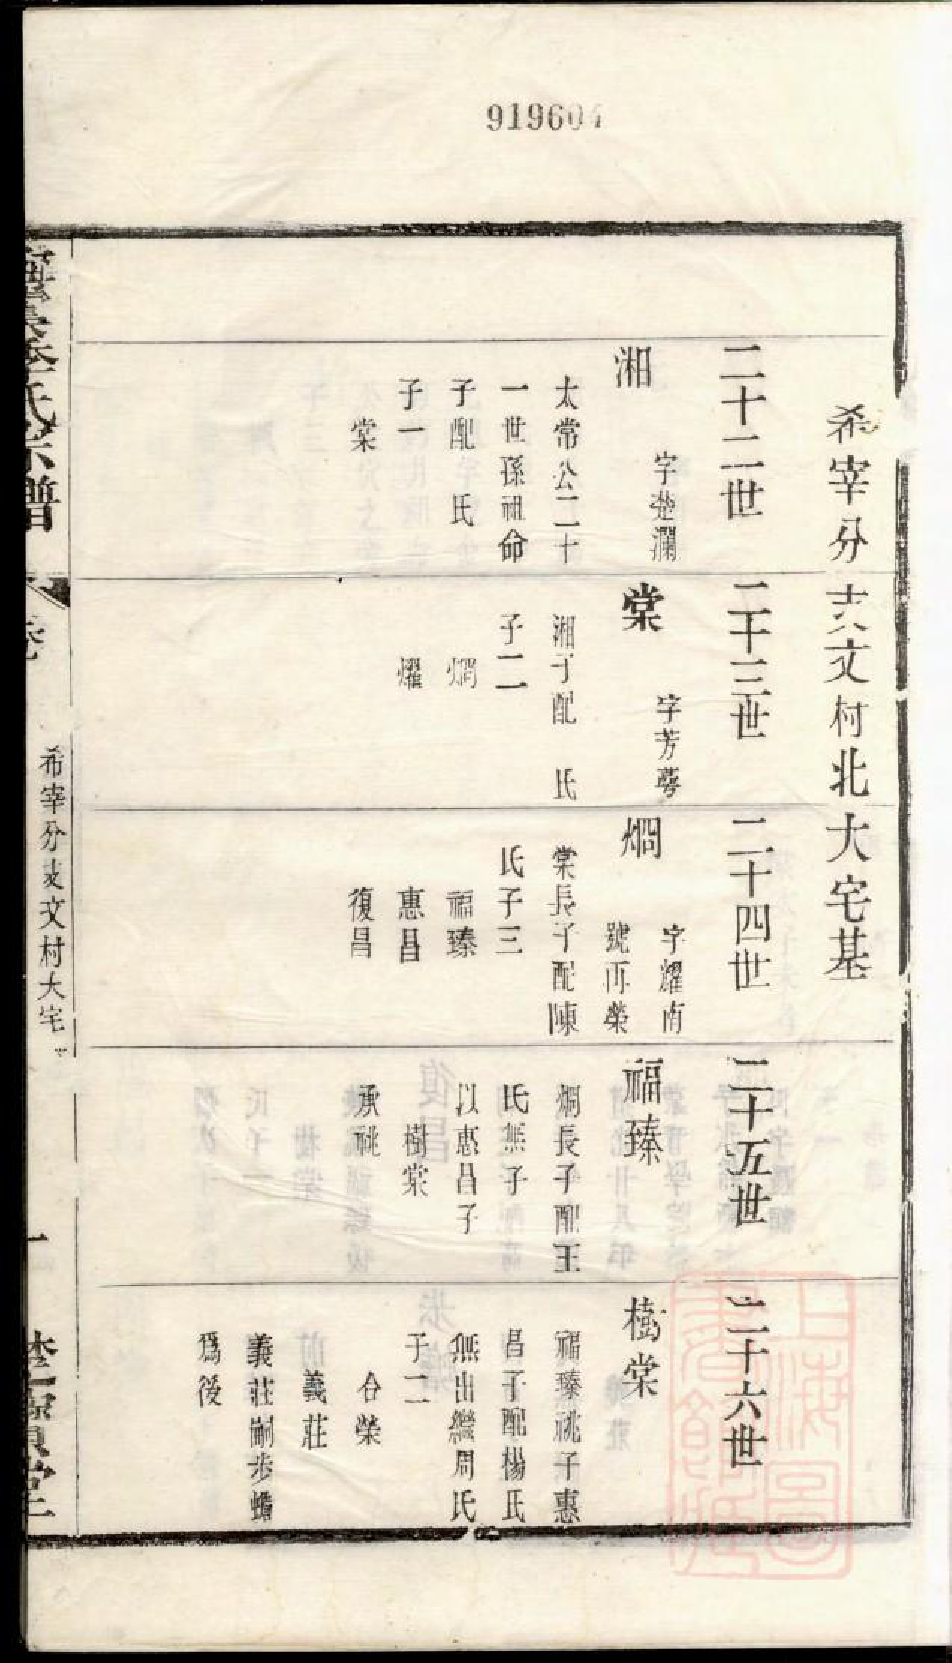 919604
希宰分支文村北大宅基
二十二世
湘
字楚瀾
太常公二十
一世孫祖命
子配　氏
子一
棠
二十三世
棠
字芳蕚
湘子配　氏
子二
燜
燿
二十四世
燜
字耀南
號再榮
棠長子配陳
氏子三
福臻
惠昌
復昌
二十五世
福臻
燜長子配王
氏無子
以惠昌子
樹棠
承祧
二十六世
樹棠
福臻祧子惠
昌子配楊氏
無出繼周氏
子二
合榮
義莊
義莊嗣步蟾
爲後
氏宗譜
希宰分支文村大宅
一